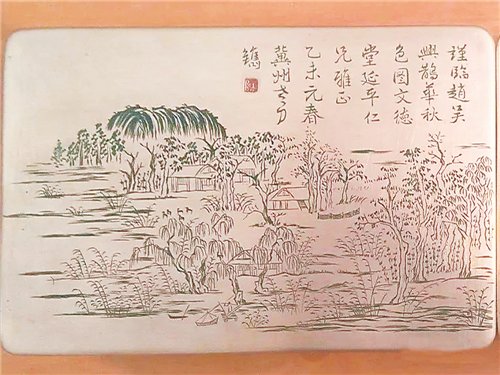 謹臨趙吴
興鵲華秋
色圖文德
堂延平仁
兄雅正
乙未元春
冀州老刀
鐫